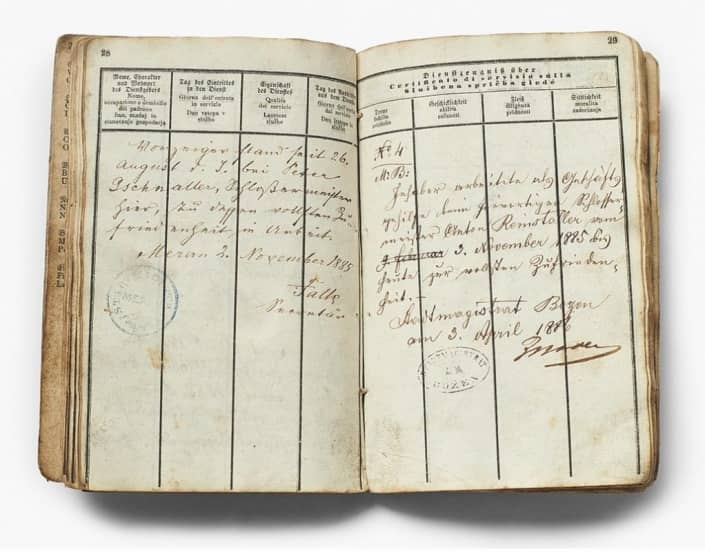 28
Name, Charakter
und Wohnort
des Dienstgebers
Nome,
occupazione e domicilio
del padrone
Tag des Eintrittes
in den Dienst
Giorno dell'entrata
in servizio
Dan vstopa v
službo
Eigenschaft
des Dienstes
Qualità
del servizio
Lastnost
službe
Tag des
aus dem Dienst
Giorno dell'
di servizio
Dan
službe
Vorzeiger stand seit 26.
August d. J. bei Peter
Pschnaller, Schlossermeister
hier, zu dessen vollsten Zu-
friedenheit, in Arbeit.
Meran 2. November 1885
Secretär
29
Dienstzeugniß über
Certificato di servizio sulla
Treue
fedeltà
Geschicklichkeit
abilità
Fleiß
diligenza
Sittlichkeit
moralità
No 4
M: B:
Inhaber arbeitete als Geschäfts-
gehilfe beim hierortigen Schlosser-
meister Anton Reinstaller vom
3. November 1885 bis
heute zur vollsten Zufrieden-
heit.
Stadtmagistrat Bozen
am 3. April 1886
BOZEN